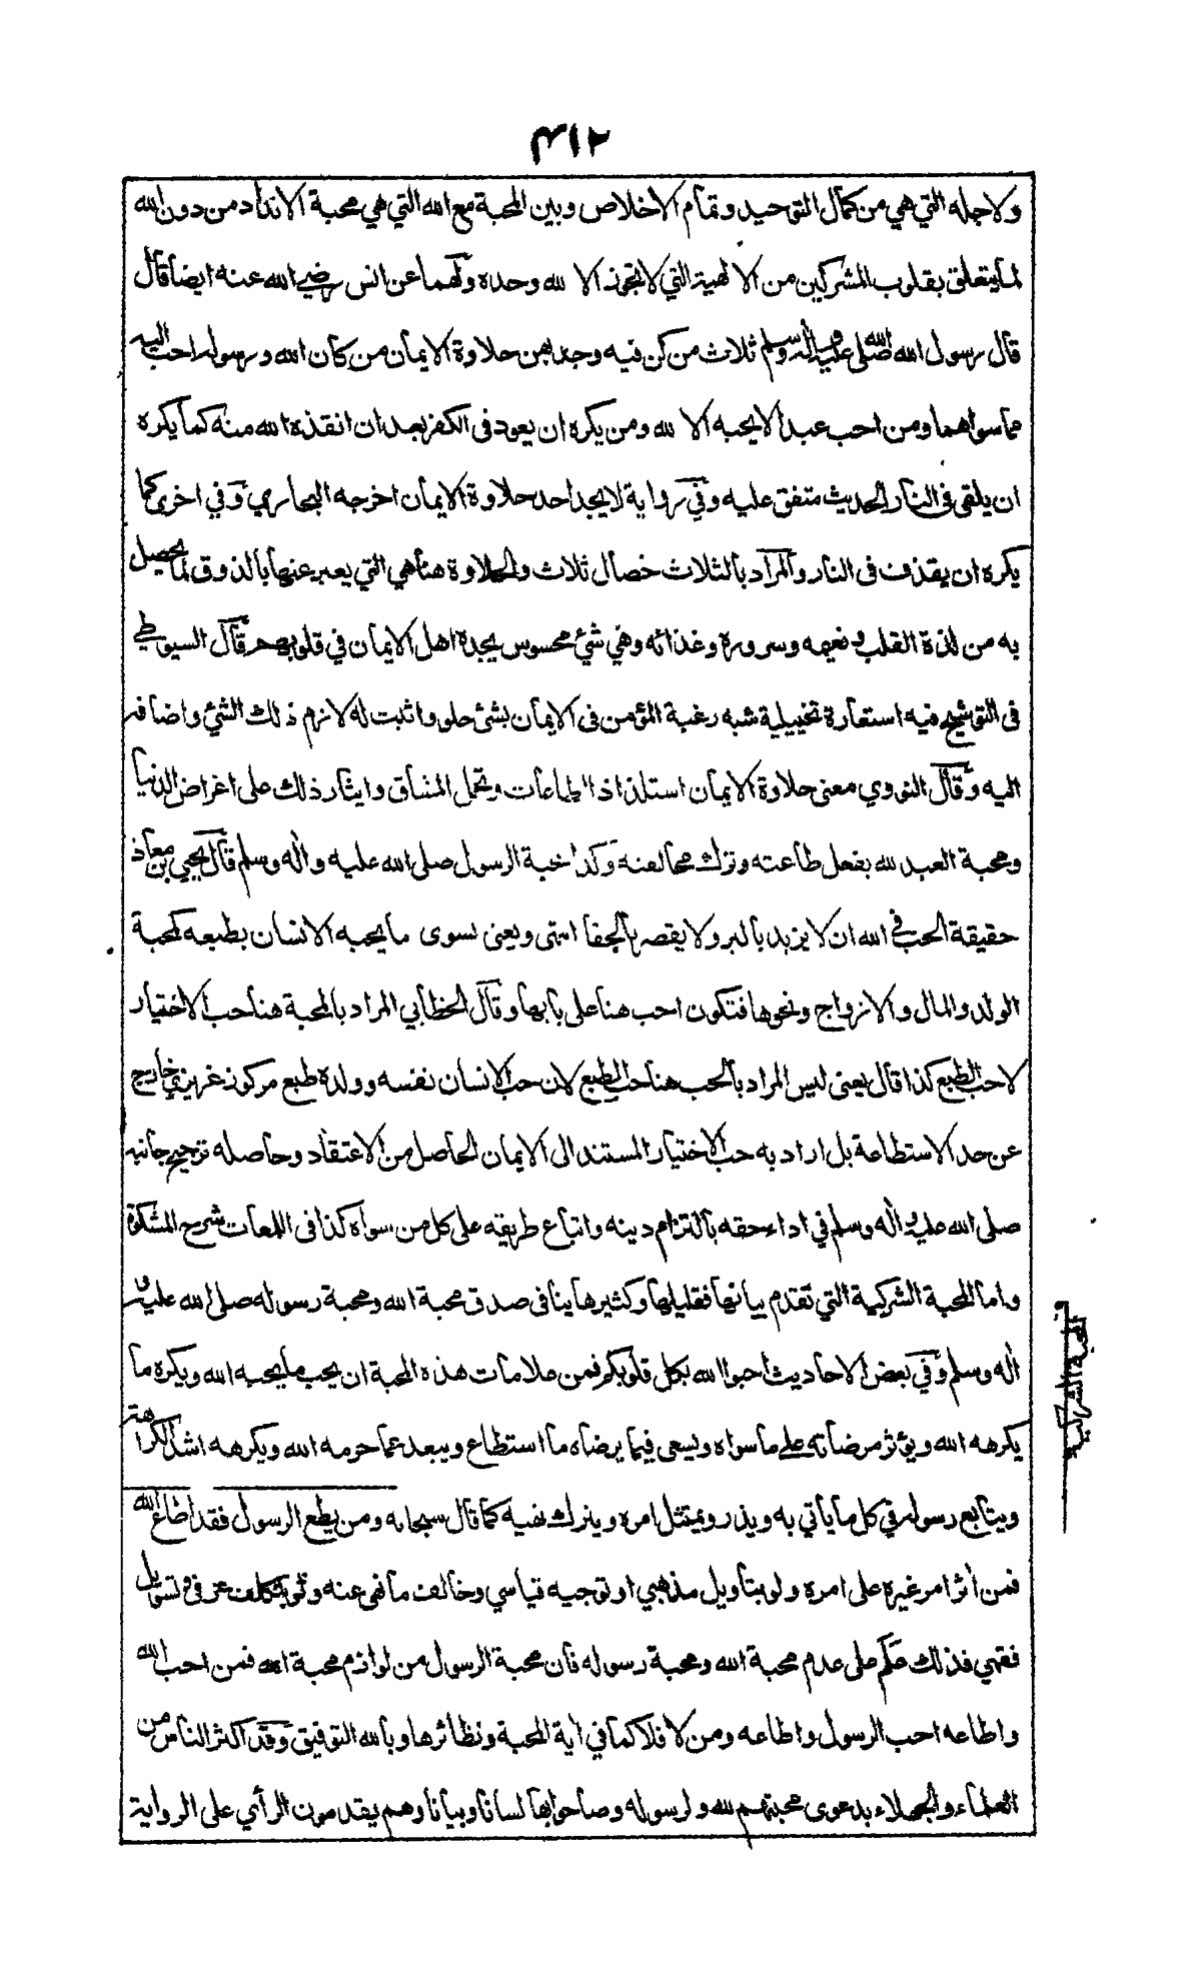 ٤١٢
ولاجله التي هي من كمال التوحيد وتمام الاخلاص وبين المحبة مع الله التي هي محبة الانداد من دون الله
لما يتعلق بقلوب المشركين من الالهية التي لا تجوز الا لله وحده ولهما عن انس رضي الله عنه ايضا قال
قال رسول الله صلى الله عليه واله وسلم ثلاث من كن فيه وجد بهن حلاوة الايمان من كان الله ورسوله احب اليه
مما سواهما ومن احب عبدا لا يحبه الا لله ومن يكره ان يعود في الكفر بعد ان انقذه الله منه كما يكره
ان يلقى في النار الحديث متفق عليه وفي رواية لا يجد احد حلاوة الايمان اخرجه البخاري وفي اخرى كما
يكره ان يقذف في النار والمراد بالثلاث خصال ثلاث والحلاوة هنا هي التي يعبر عنها بالذوق لما يحصل
به من لذة القلب ونعيمه وسروره وغذائه وهي شئ محسوس يجده اهل الايمان في قلوبهم قال السيوطي
في التوشيح فيه استعارة تخييلية شبه رغبة المؤمن في الايمان بشئ حلو واثبت له لازم ذلك الشئ واضافه
اليه وقال النووي معنى حلاوة الايمان استلذاذ الطاعات وتحمل المشاق وايثار ذلك على اغراض الدنيا
ومحبة العبد لله بفعل طاعته وترك مخالفته وكذا محبة الرسول صلى الله عليه واله وسلم قال يحيى بن معاذ
حقيقة الحب في الله ان لا يزيد بالبر ولا يقصر بالجفا انتهى ويعنى بسوى ما يحبه الانسان بطبعه كمحبة
الولد والمال والازواج ونحوها فتكون احب هنا على بابها وقال الخطابي المراد بالمحبة هنا حب الاختيار
لا حب الطبع كذا قال يعنى ليس المراد بالحب هنا حب الطبع لان حب الانسان نفسه وولده طبع مركوز غريزي خارج
عن حد الاستطاعة بل اراد به حب الاختيار المستند الى الايمان الحاصل من الاعتقاد وحاصله ترجيح جانبه
صلى الله عليه واله وسلم في اداء حقه بالتزام دينه واتباع طريقه على كل من سواه كذا في اللمعات شرح المشكوة
واما المحبة الشركية التي تقدم بيانها فقليلها وكثيرها ينافي صدق محبة الله ومحبة رسوله صلى الله عليه و
اله وسلم وفي بعض الاحاديث احبوا الله بكل قلوبكم فمن علامات هذه المحبة ان يحب ما يحبه الله ويكره ما
يكرهه الله ويؤثر مرضاته على ما سواه ويسعى فيما يرضاه ما استطاع ويبعد عما حرمه الله ويكرهه اشد الكراهة
ويتابع رسوله في كل ما يأتي به ويذر ويمتثل امره ويترك نهيه كما قال سبحانه ومن يطع الرسول فقد اطاع الله
فمن أثر امر غيره على امره ولو بتأويل مذهبي او توجيه قياسي وخالف ما نهى عنه ولو بتكلف عرفي وتسويل
فقهي فذلك علم على عدم محبة الله ومحبة رسوله فان محبة الرسول من لوازم محبة الله فمن احب الله
واطاعه احب الرسول واطاعه ومن لا فلا كما في أية المحبة ونظائرها وبالله التوفيق وقد اكثر الناس من
العلماء والجهلاء بدعوى محبتهم لله ولرسوله وصاحوا بها لسانا وبيانا وهم يقدمون الرأي على الرواية